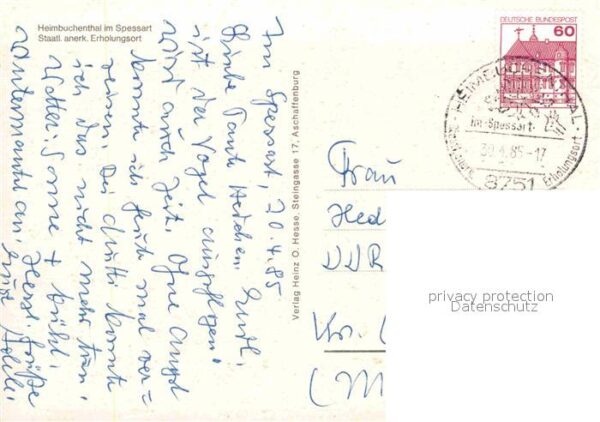 Heimbuchenthal im Spessart
Staatl. anerk. Erholungsort
Im Spessart, 20.4.85
Liebe Tante Hedchen! Endl.
ist der Vogel ausgeflogen!
wird auch Zeit. Ohne Angst
konnte ich heute mal ver=
reisen. Bei Mutti konnte
ich das nicht mehr tun!
Wetter: Sonne + kühl.
Herzl. Grüße
Verlag Heinz O. Hesse, Steingasse 17, Aschaffenburg
DEUTSCHE BUNDESPOST
60
HEIMBUCHENTHAL
im Spessart
-17
8751
Erholungsort
Frau
Hed
DDR
Kr. (
(M
privacy protection
Datenschutz